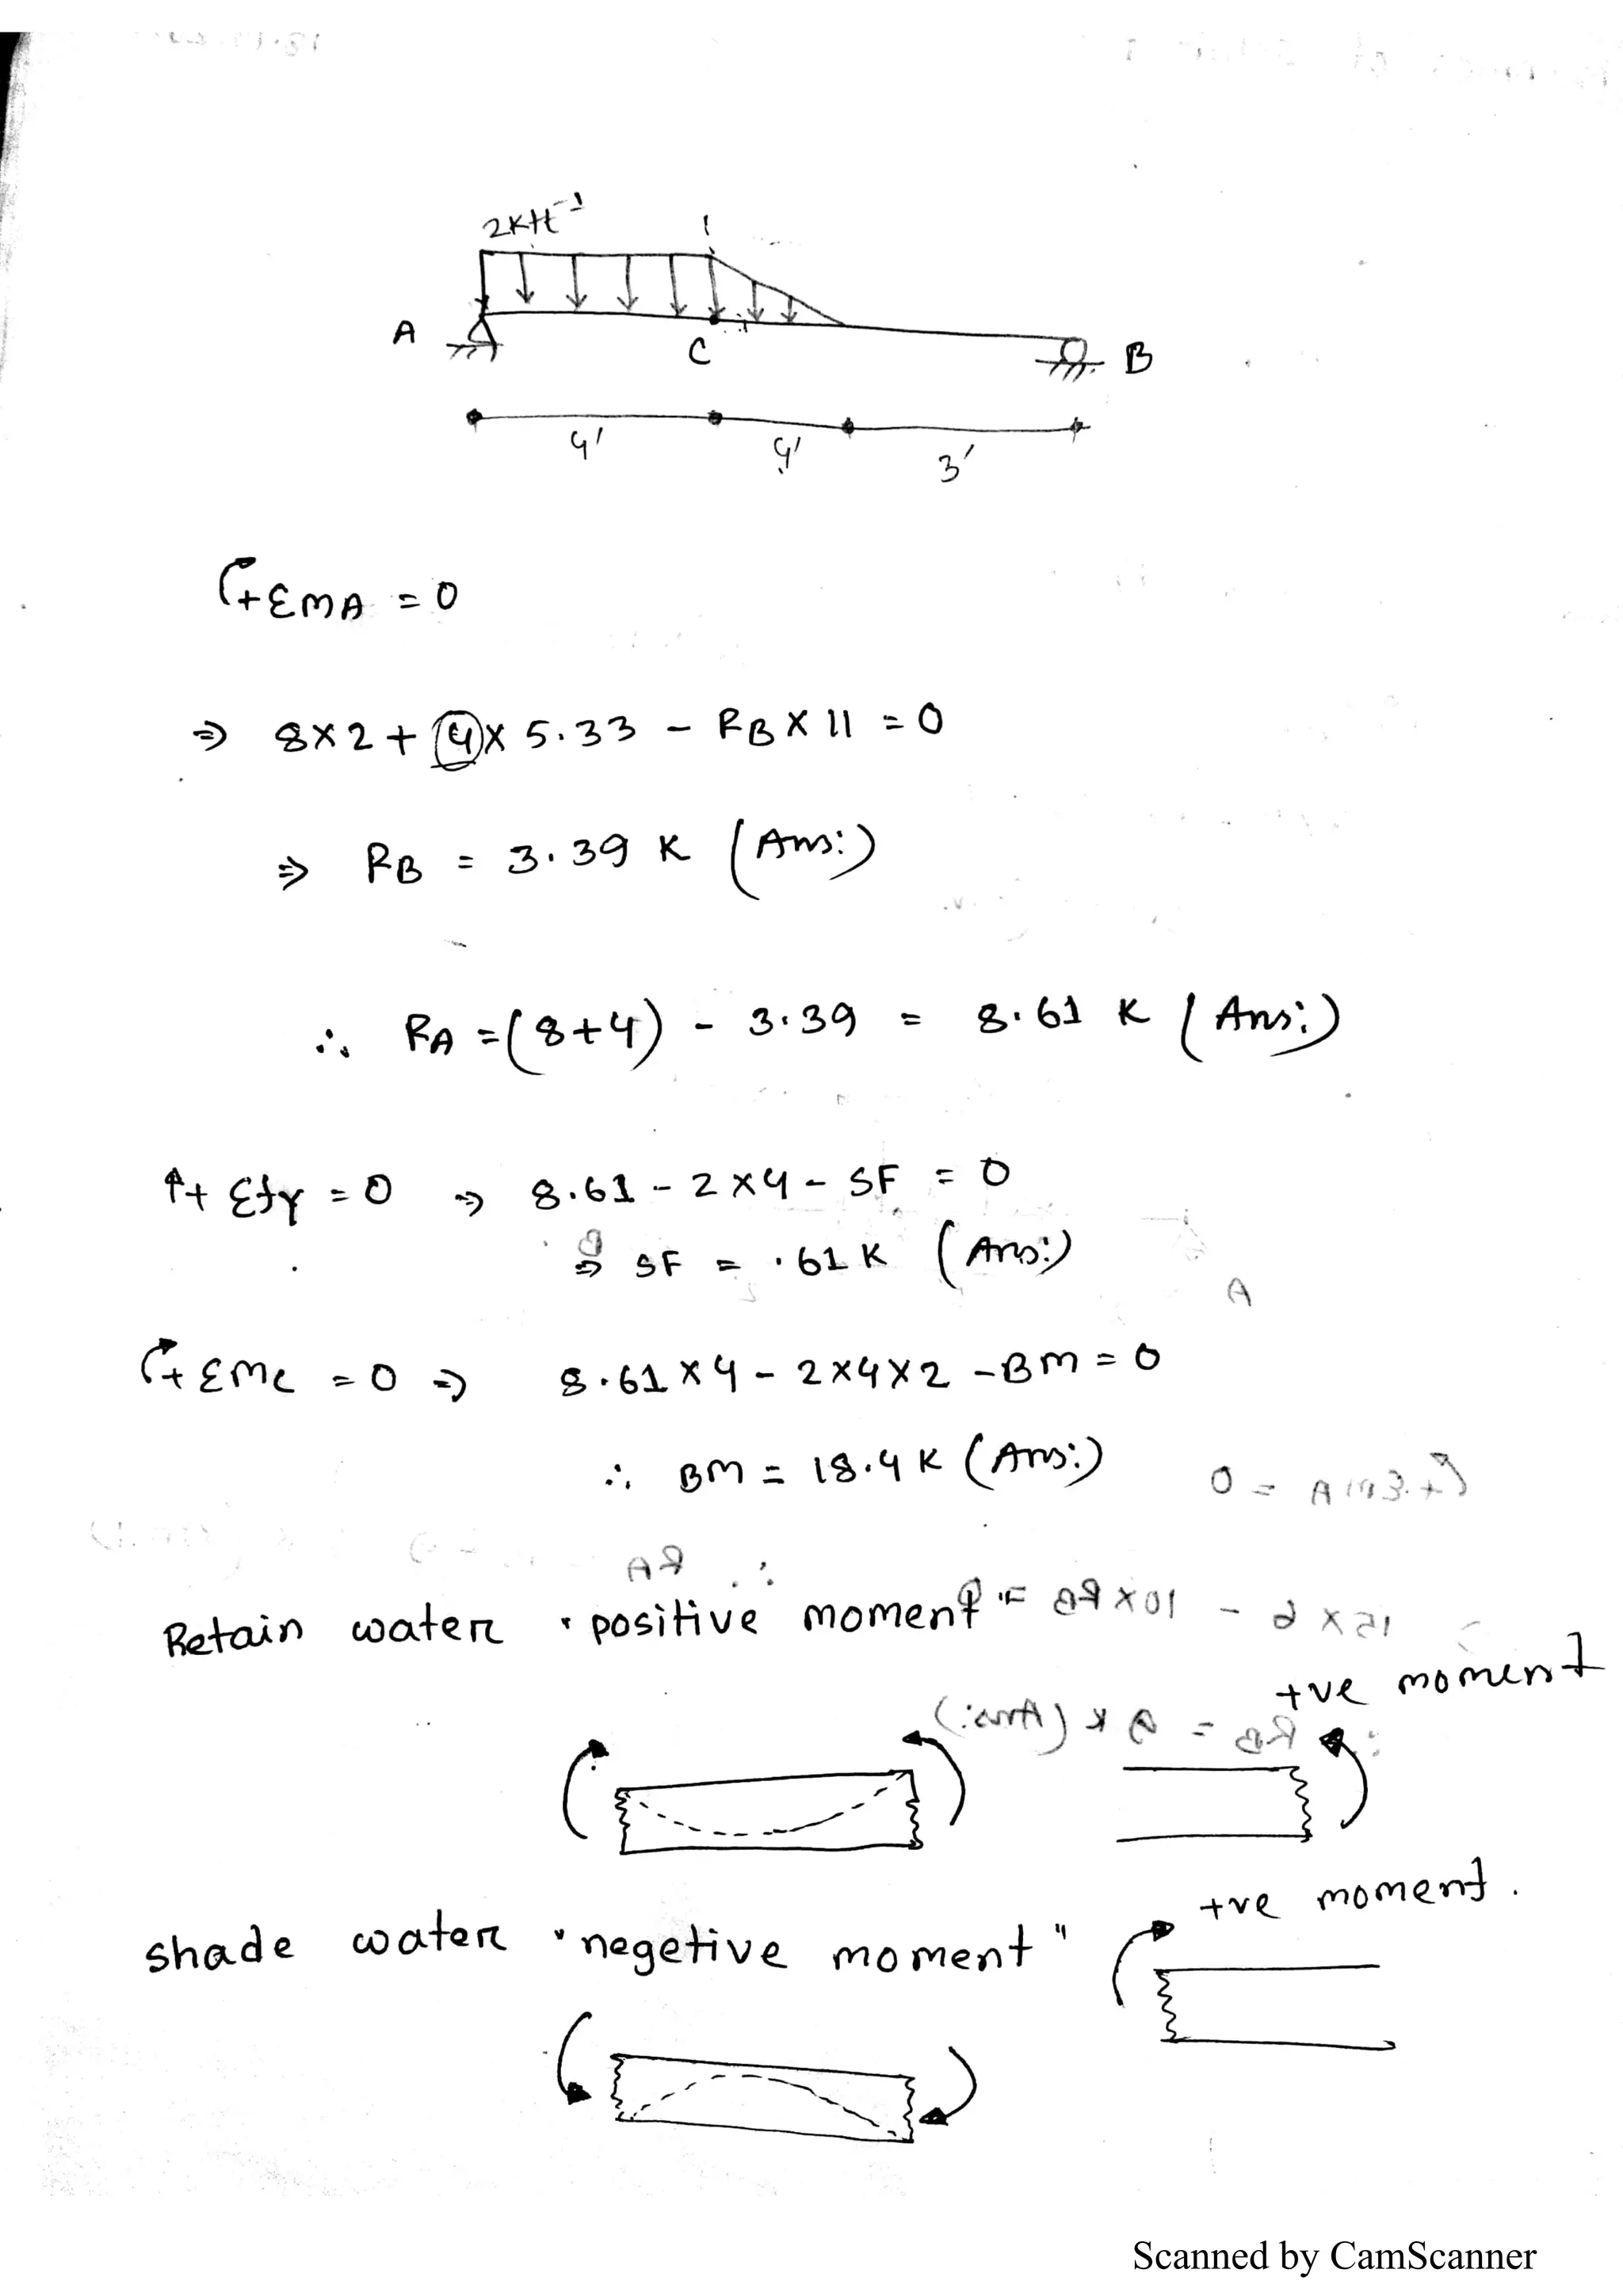 2kft⁻¹
A
C
B
4'
4'
3'
+ΣMA = 0
⇒ 8×2 + 4× 5.33 - RB × 11 = 0
⇒ RB = 3.39 K (Ans:)
∴ RA = (8+4) - 3.39 = 8.61 K (Ans:)
↑+ Σfy = 0 ⇒ 8.61 - 2×4 - SF = 0
⇒ SF = .61 K (Ans:)
+ΣMc = 0 ⇒ 8.61×4 - 2×4×2 - BM = 0
∴ BM = 18.4 K (Ans:)
Retain water "positive moment"
+ve moment
+ve moment.
shade water "negetive moment"
Scanned by CamScanner